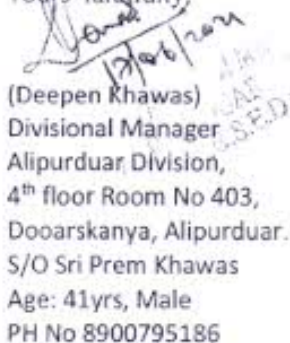 17/06/2021
(Deepen Khawas)
Divisional Manager
Alipurduar Division,
4th floor Room No 403,
Dooarskanya, Alipurduar.
S/O Sri Prem Khawas
Age: 41yrs, Male
PH No 8900795186